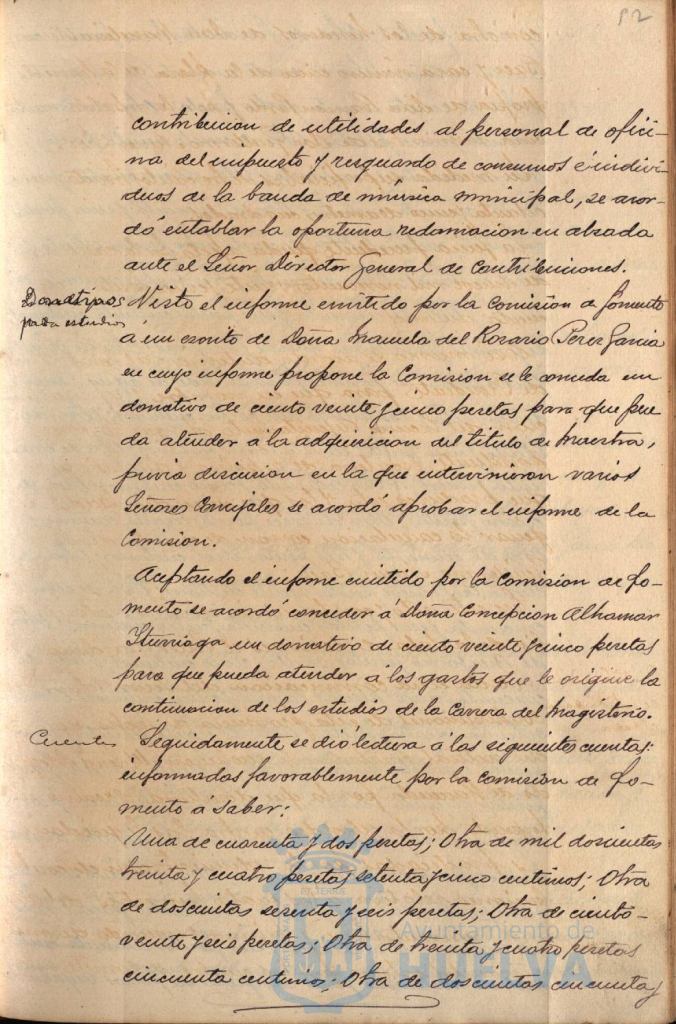 52
contribucion de utilidades al personal de ofici-
na del impuesto y resguardo de consumos é indivi-
duos de la banda de música municipal, se acor-
dó entablar la oportuna reclamacion en alzada
ante el Señor Director General de Contribuciones.
Donativos
para estudios
Visto el informe emitido por la Comision de Fomento
á un escrito de Doña Manuela del Rosario Perez Garcia
en cuyo informe propone la Comision se le conceda un
donativo de ciento veinte y cinco pesetas para que pue
da atender á la adquisicion del titulo de Maestra,
previa discusion en la que intervinieron varios
Señores Concejales se acordó aprobar el informe de la
Comision.
Aceptando el informe emitido por la Comision de Fo-
mento se acordó conceder á Doña Concepcion Alhamar
Iturriaga un donativo de ciento veinte y cinco pesetas
para que pueda atender á los gastos que le origine la
continuacion de los estudios de la Carrera del Magisterio.
Cuentas
Seguidamente se dió lectura á las siguientes cuentas:
informadas favorablemente por la Comision de Fo-
mento á saber:
Una de cuarenta y dos pesetas; Otra de mil doscientas
treinta y cuatro pesetas setenta y cinco centimos; Otra
de doscientas sesenta y seis pesetas; Otra de ciento-
veinte y seis pesetas; Otra de treinta y cuatro pesetas
cincuenta centimos; Otra de doscientas cincuenta y
Ayuntamiento de
HUELVA